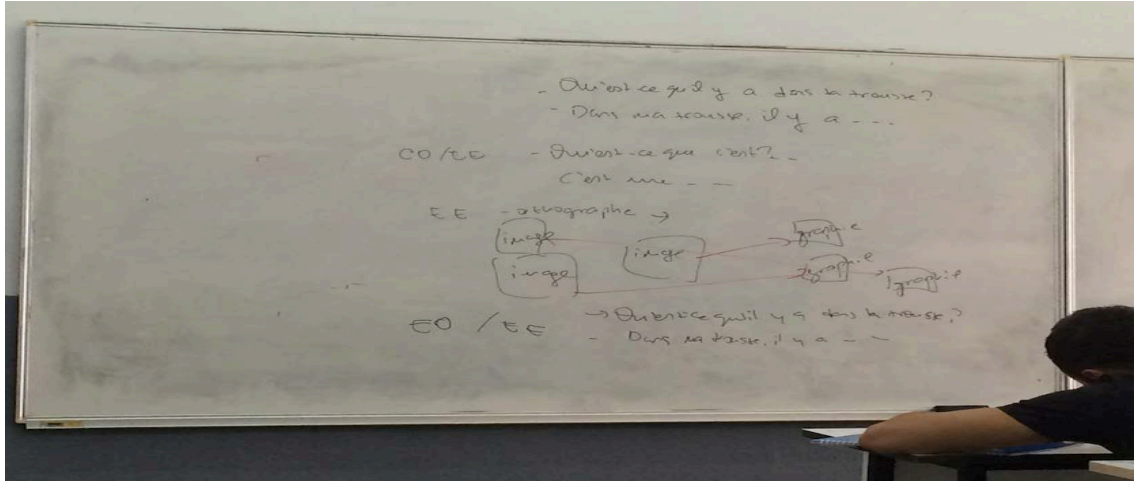 - Qu'est ce qu'il y a dans la trousse?
- Dans ma trousse, il y a - - -
CO/EE - Qu'est-ce que c'est? - -
C'est une - - -
EE - orthographe →
image image graphie
image graphie graphie
EO / EE → Qu'est ce qu'il y a dans la trousse?
- Dans ma trousse, il y a - - -